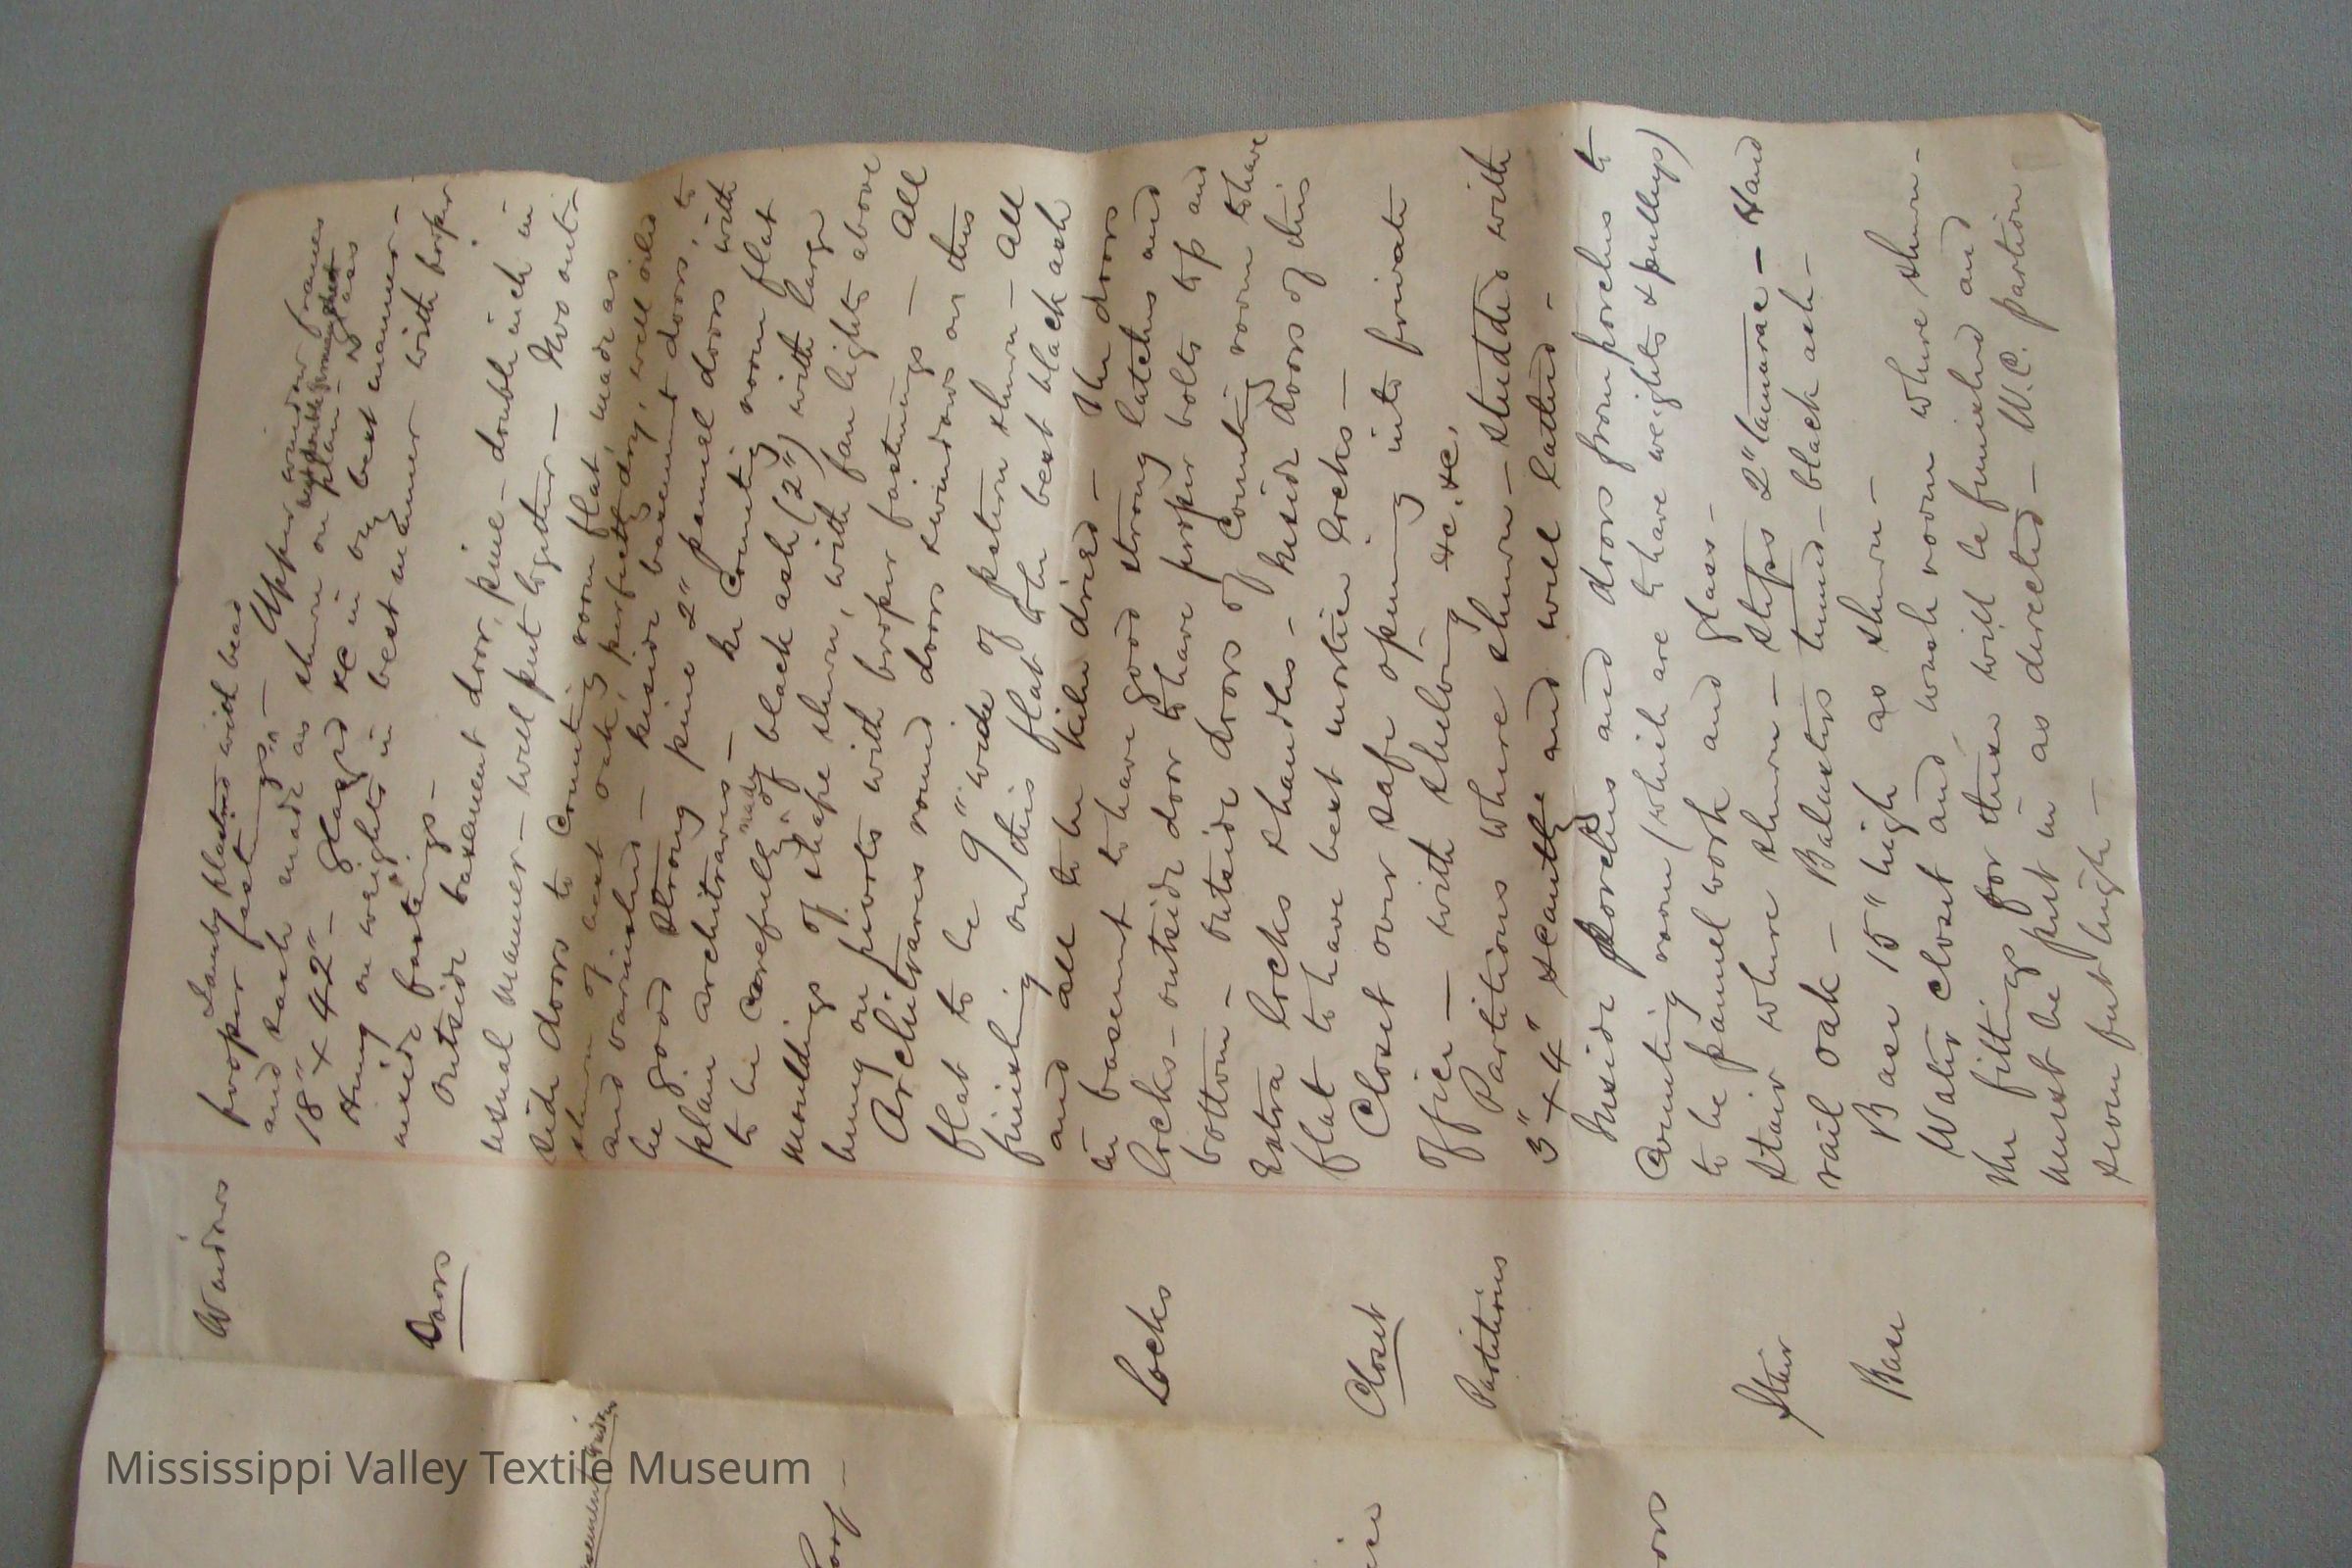 Windows
Jambs plastered with bead
proper fastenings. — Upper window frames
and sash made as shewn on plan —
18" x 42" — glazed &c in best manner —
Hung on weights in best manner with proper
inside fastenings —
Doors
Outside basement door, pine — double inch in
usual manner — well put together — Two out-
side doors to Counting room flat, made as
shewn of best oak, perfectly dry, well oiled
and varnished — Inside basement doors, to
be good strong pine 2" pannel doors with
plain architraves — In Counting room flat
to be carefully made of black ash (2") with large
mouldings of shape shewn, with fan lights above
hung on pivots with proper fastenings — All
Architraves round doors & windows on this
flat to be 9" wide of pattern shewn — All
finishing on this flat to be best black ash
and all to be kiln dried — The doors
Locks
in basement to have good strong latches and
locks — outside door to have proper bolts top and
bottom — outside doors of Counting room to have
Extra locks & handles — Inside doors of this
flat to have best mortise locks —
Closet
Closet over safe opening into private
office — with shelving &c. &c.
Partitions
Partitions where shewn — studded with
3" x 4" scantling and well lathed —
Inside porches and doors from porches to
Counting room (which are to have weights & pulleys)
to be pannel work and glass —
Stair
Stair where shewn — steps 2" tamarac — Hand
rail oak — Balusters turned — black ash —
Base
Base 15" high as shewn —
Water closet and wash room where shewn —
The fittings for these will be furnished and
must be put in as directed — W.C. partion
seven feet high —
Roof —
Mississippi Valley Textile Museum